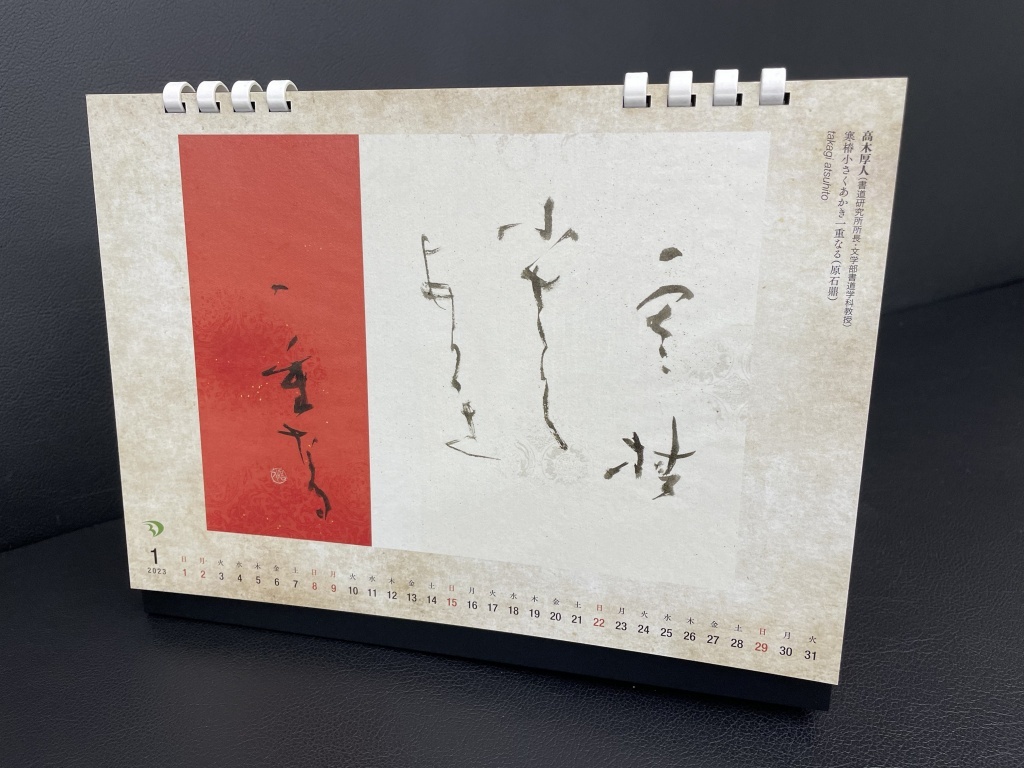 高木厚人(書道研究所所長・文学部書道学科教授)
寒椿小さくあかき一重なる(原石鼎)
takagi atsuhito
寒椿
小さくあ
かき
一重なる
1
2023
日 月 火 水 木 金 土 日 月 火 水 木 金 土 日 月 火 水 木 金 土 日 月 火 水 木 金 土 日 月 火
1 2 3 4 5 6 7 8 9 10 11 12 13 14 15 16 17 18 19 20 21 22 23 24 25 26 27 28 29 30 31